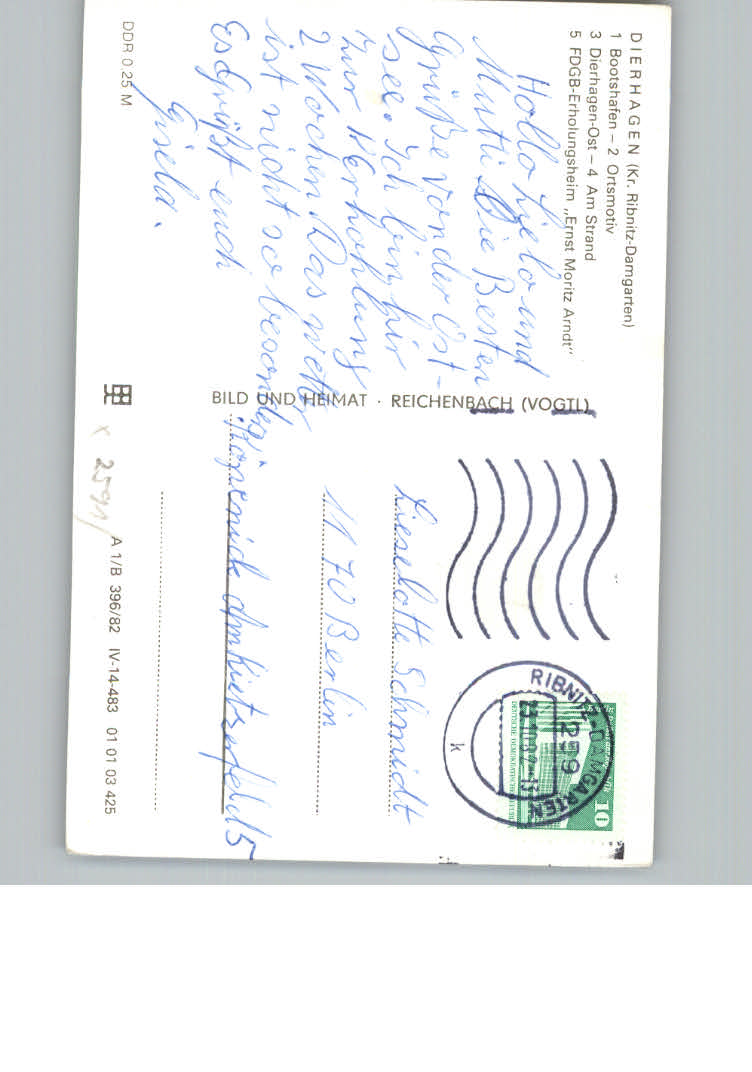 DIERHAGEN (Kr. Ribnitz-Damgarten)
1 Bootshafen – 2 Ortsmotiv
3 Dierhagen-Ost – 4 Am Strand
5 FDGB-Erholungsheim „Ernst Moritz Arndt"
Hallo Lielo und
Mutti Die Besten
Grüße von der Ost-
see. Ich bin hir
zur Kerhohlung
2 Wochen Das wetter
ist nicht so besonders
Es Grüßt euch
Gisela.
DDR 0,25 M
BILD UND HEIMAT · REICHENBACH (VOGTL)
RIBNITZ-DAMGARTEN
259
k
10
Lieselotte Schmidt
1170 Berlin
Köpenick Amkietzerfeld 15
x 2591/
A 1/B 396/82 IV-14-483 01 01 03 425